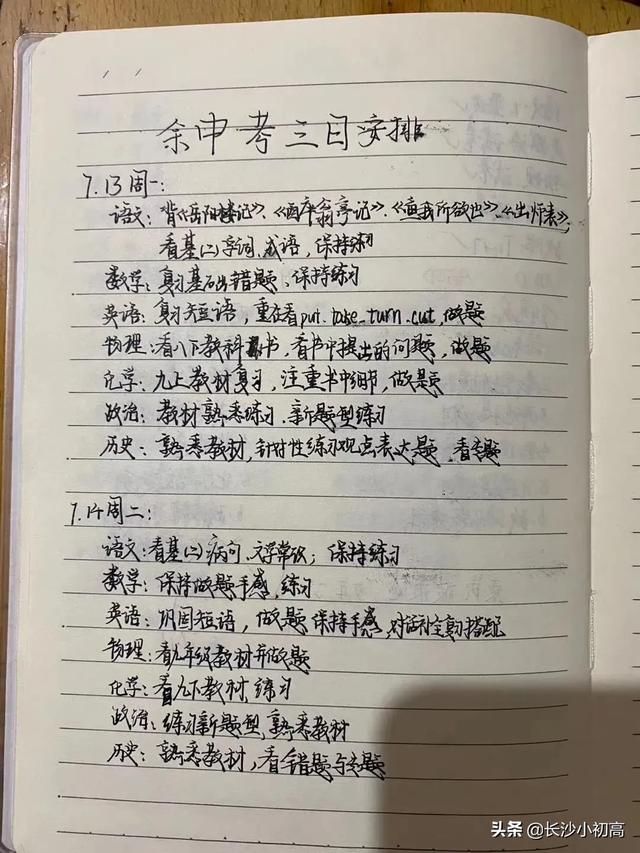 余中考三日安排
7.13周一:
语文:背《岳阳楼记》、《醉翁亭记》、《鱼我所欲也》、《出师表》;
看基(二)字词、成语,保持练习
数学:复习基础错题、保持练习
英语:复习短语,重在看put.take.turn.cut,做题
物理:看八下教科书,看书中提出的问题,做题
化学:九上教材复习,注重书中细节,做题
政治:教材熟悉练习、新题型练习
历史:熟悉教材,针对性练习观点表达题、看专题
7.14周二:
语文:看基(二)病句、文学常识;保持练习
数学:保持做题手感,练习
英语:巩固短语,做题保持手感,对话填空复习搭配
物理:看九年级教材并做题
化学:看九下教材,练习
政治:练习新题型,熟悉教材
历史:熟悉教材,看错题与专题
头条 @长沙小初高